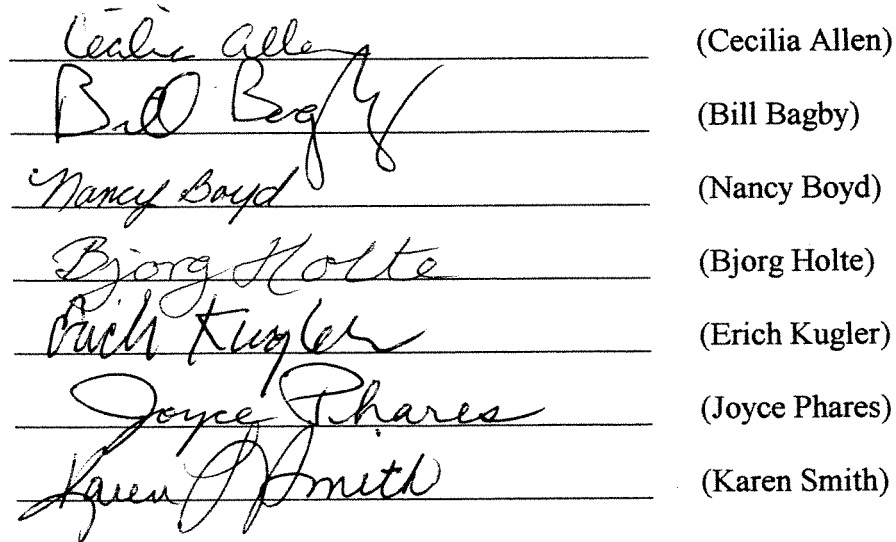 Cecilia Allen (Cecilia Allen)
Bill Bagby (Bill Bagby)
Nancy Boyd (Nancy Boyd)
Bjorg Holte (Bjorg Holte)
Erich Kugler (Erich Kugler)
Joyce Phares (Joyce Phares)
Karen J Smith (Karen Smith)